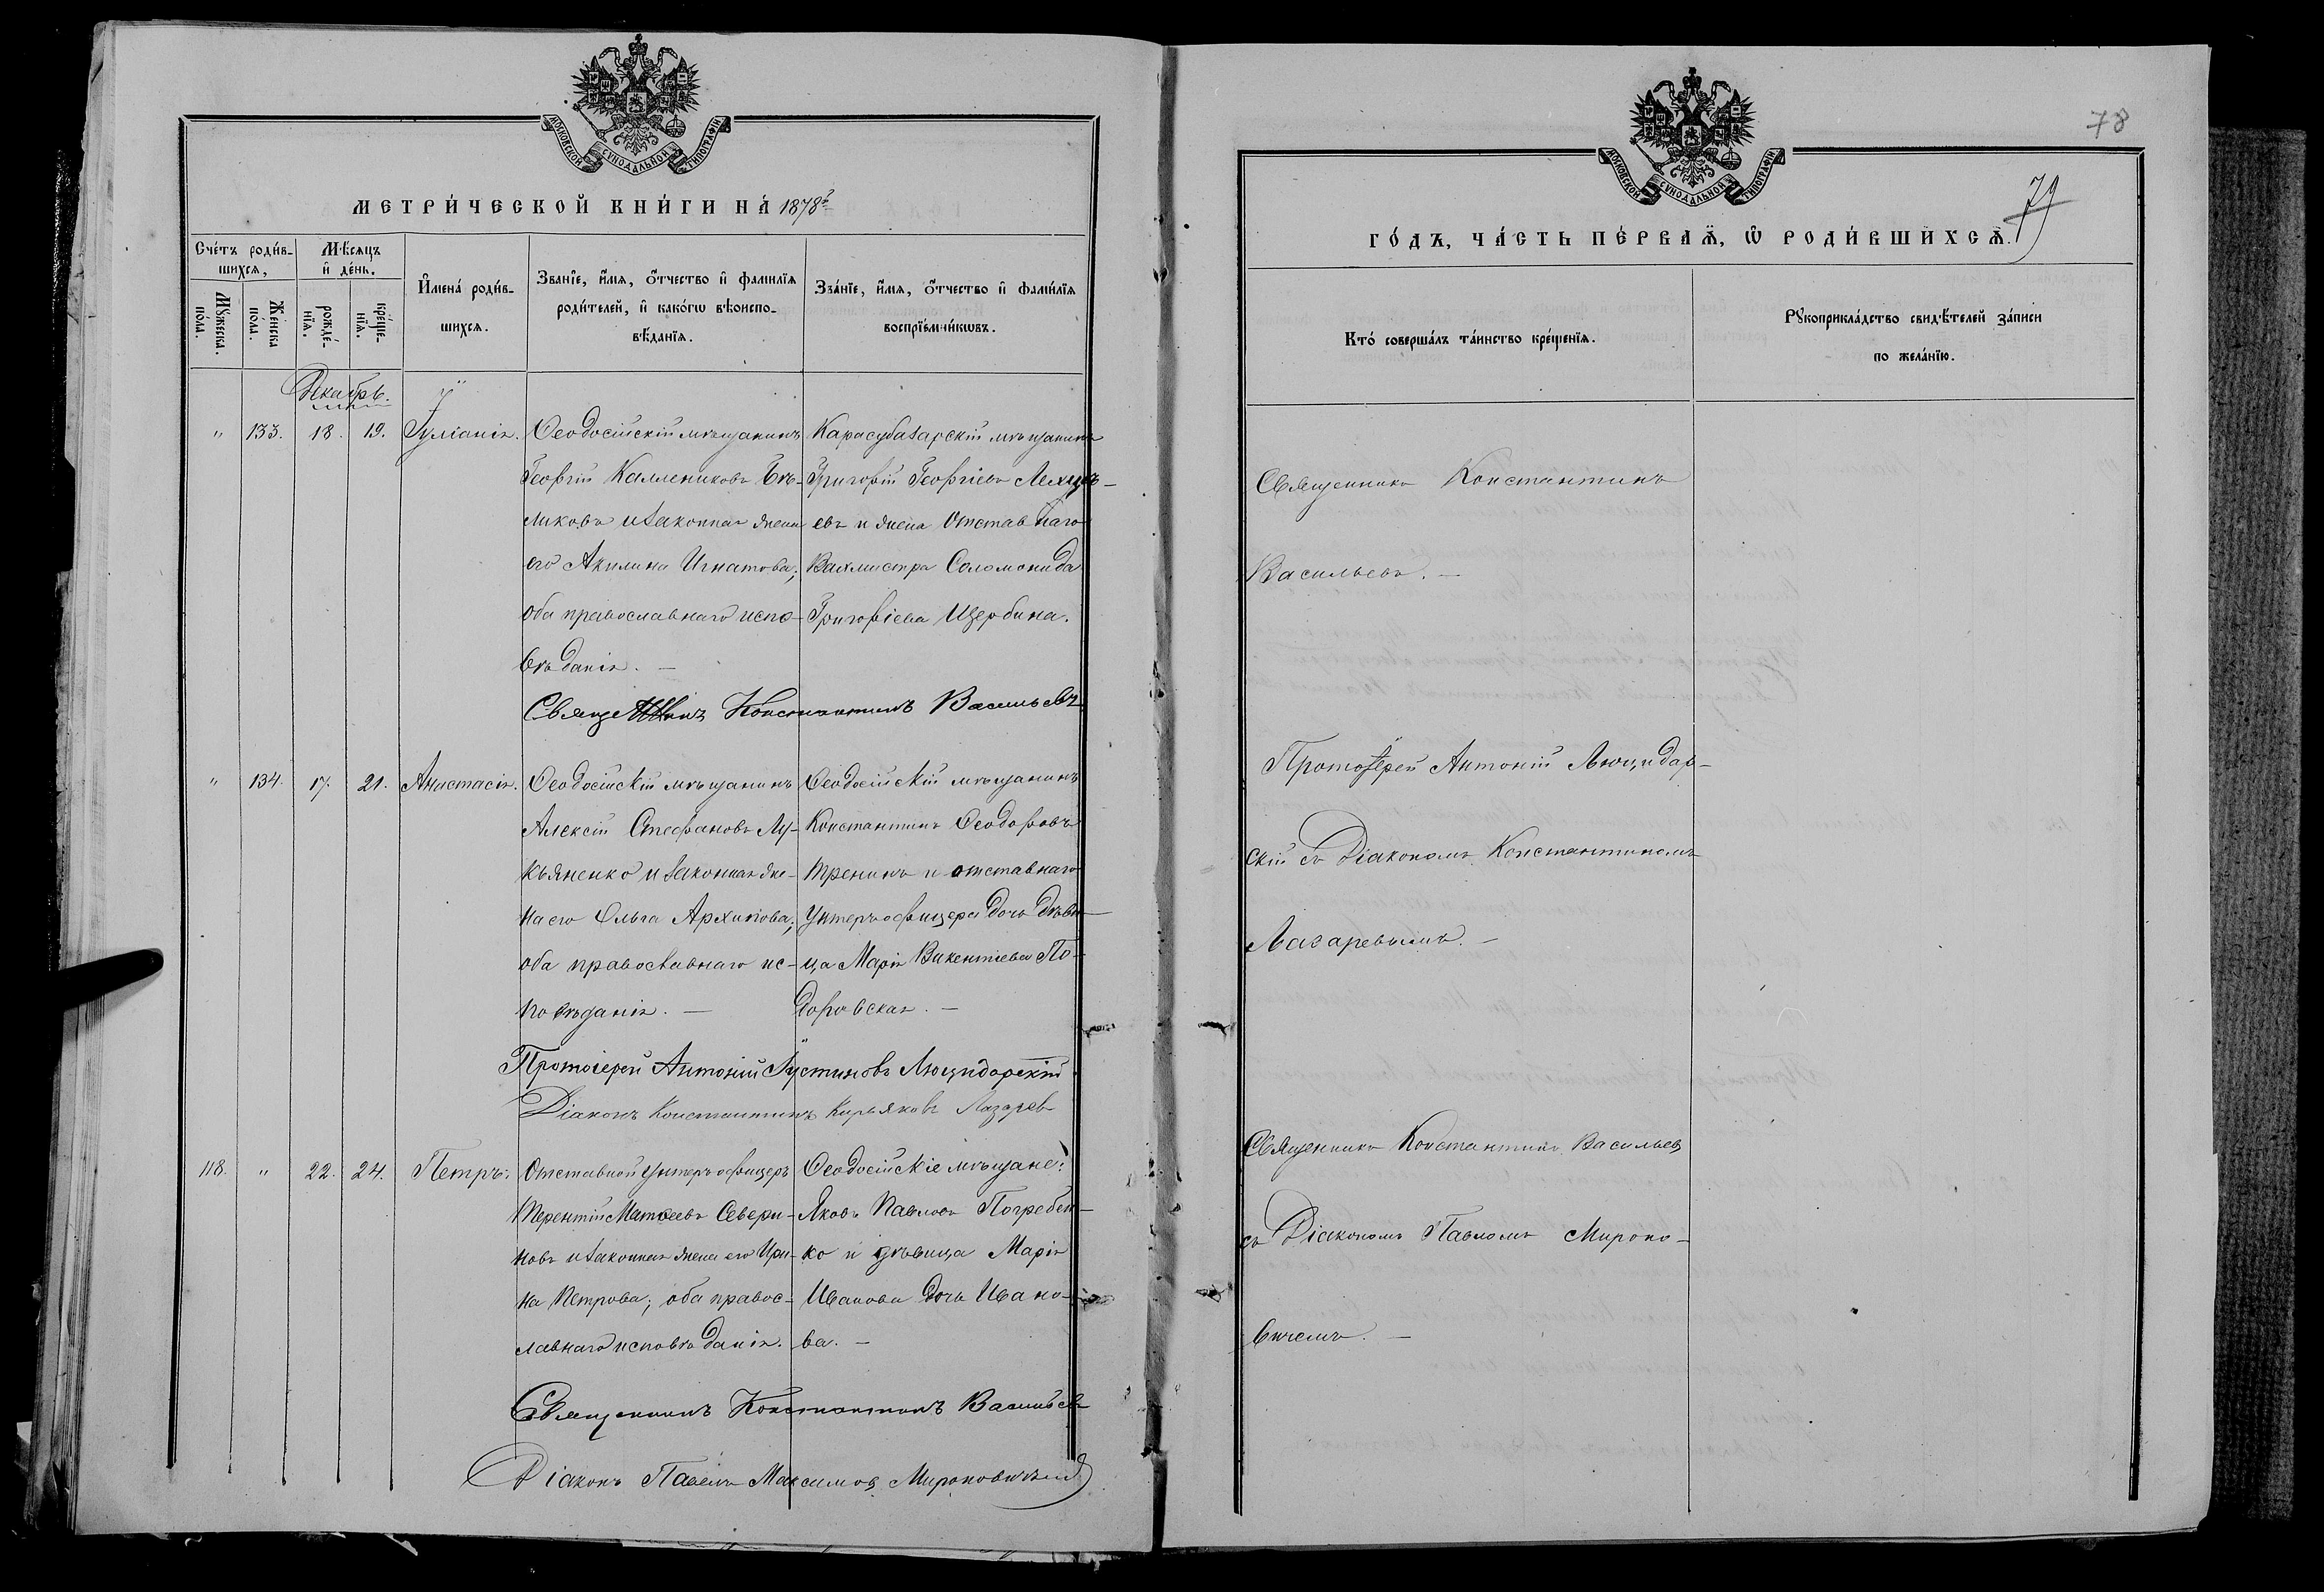 МОСКОВСКОЙ СѴНОДАЛЬНОЙ ТИПОГРАФІИ
МЕТРИ́ЧЕСКОЙ КНИ́ГИ НА́ 1878 г.
Сче́тъ роди́в-
шихсѧ,
Мѣ́сѧцъ
и҆ де́нь.
И҆мена́ роди́в-
шихсѧ.
Зва́нїе, и҆́мѧ, ѻ҆́тчество и҆ фами́лїѧ
роди́телей, и҆ како́гѡ вѣроиспо-
вѣ́данїѧ.
Зва́нїе, и҆́мѧ, ѻ҆́тчество и҆ фами́лїѧ
воспрїе́мникѡвъ.
Мꙋжеска пола.
Же́нска пола.
рожде́-
нїѧ.
креще́-
нїѧ.
Декабрь.
„ 133. 18. 19. Іуліанія.
Ѳеодосійскій мѣщанинъ
Георгій Каллениковъ
ликовъ и законная жена
его Акилина Игнатова;
оба православнаго испо-
вѣданія. —
Карасубазарскій мѣщанинъ
Григорій Георгіевъ
евъ и жена Отставнаго
Вахмистра Соломонида
Григоріева Щербина.
Священникъ Константинъ Васильевъ
„ 134. 17. 21. Анастасія.
Ѳеодосійскій мѣщанинъ
Алексій Стефановъ Лу-
кьяненко и законная же-
на его Ольга Архипова;
оба православнаго ис-
повѣданія. —
Ѳеодосійскій мѣщанинъ
Константинъ Ѳеодоровъ
Тренинъ и отставнаго
Унтеръ офицера дочь дѣви-
ца Марія Викентіева По-
доровская. —
Протоіерей Антоній Іустиновъ Люцидарскій
Діаконъ Константинъ Кирьяковъ Лазарев
118. „ 22. 24. Петръ.
Отставной Унтеръ офицеръ
Терентій Матѳеевъ Севери-
новъ и законная жена его Ири-
на Петрова; оба правос-
лавнаго исповѣданія.
Ѳеодосійскіе мѣщане:
Яковъ Павловъ Погребен-
ко и дѣвица Марія
Иванова дочь Ивано-
ва. —
Священникъ Константинъ Васильевъ
Діаконъ Павелъ Максимов Мироновичъ
78
79
МОСКОВСКОЙ СѴНОДАЛЬНОЙ ТИПОГРАФІИ
ГО́ДЪ, ЧА́СТЬ ПЕ́РВАѦ, Ѡ҆ РОДИ́ВШИХСѦ.
Кто́ соверша́лъ та́инство креще́нїѧ.
Рꙋкоприкла́дство свидѣ́телей за́писи
по жела́нїю.
Священникъ Константинъ
Васильевъ. —
Протоіерей Антоній Люцидар-
скій съ Діакономъ Константиномъ
Лазаревымъ. —
Священникъ Константинъ Васильев
съ Діакономъ Павломъ Мироно-
вичемъ. —